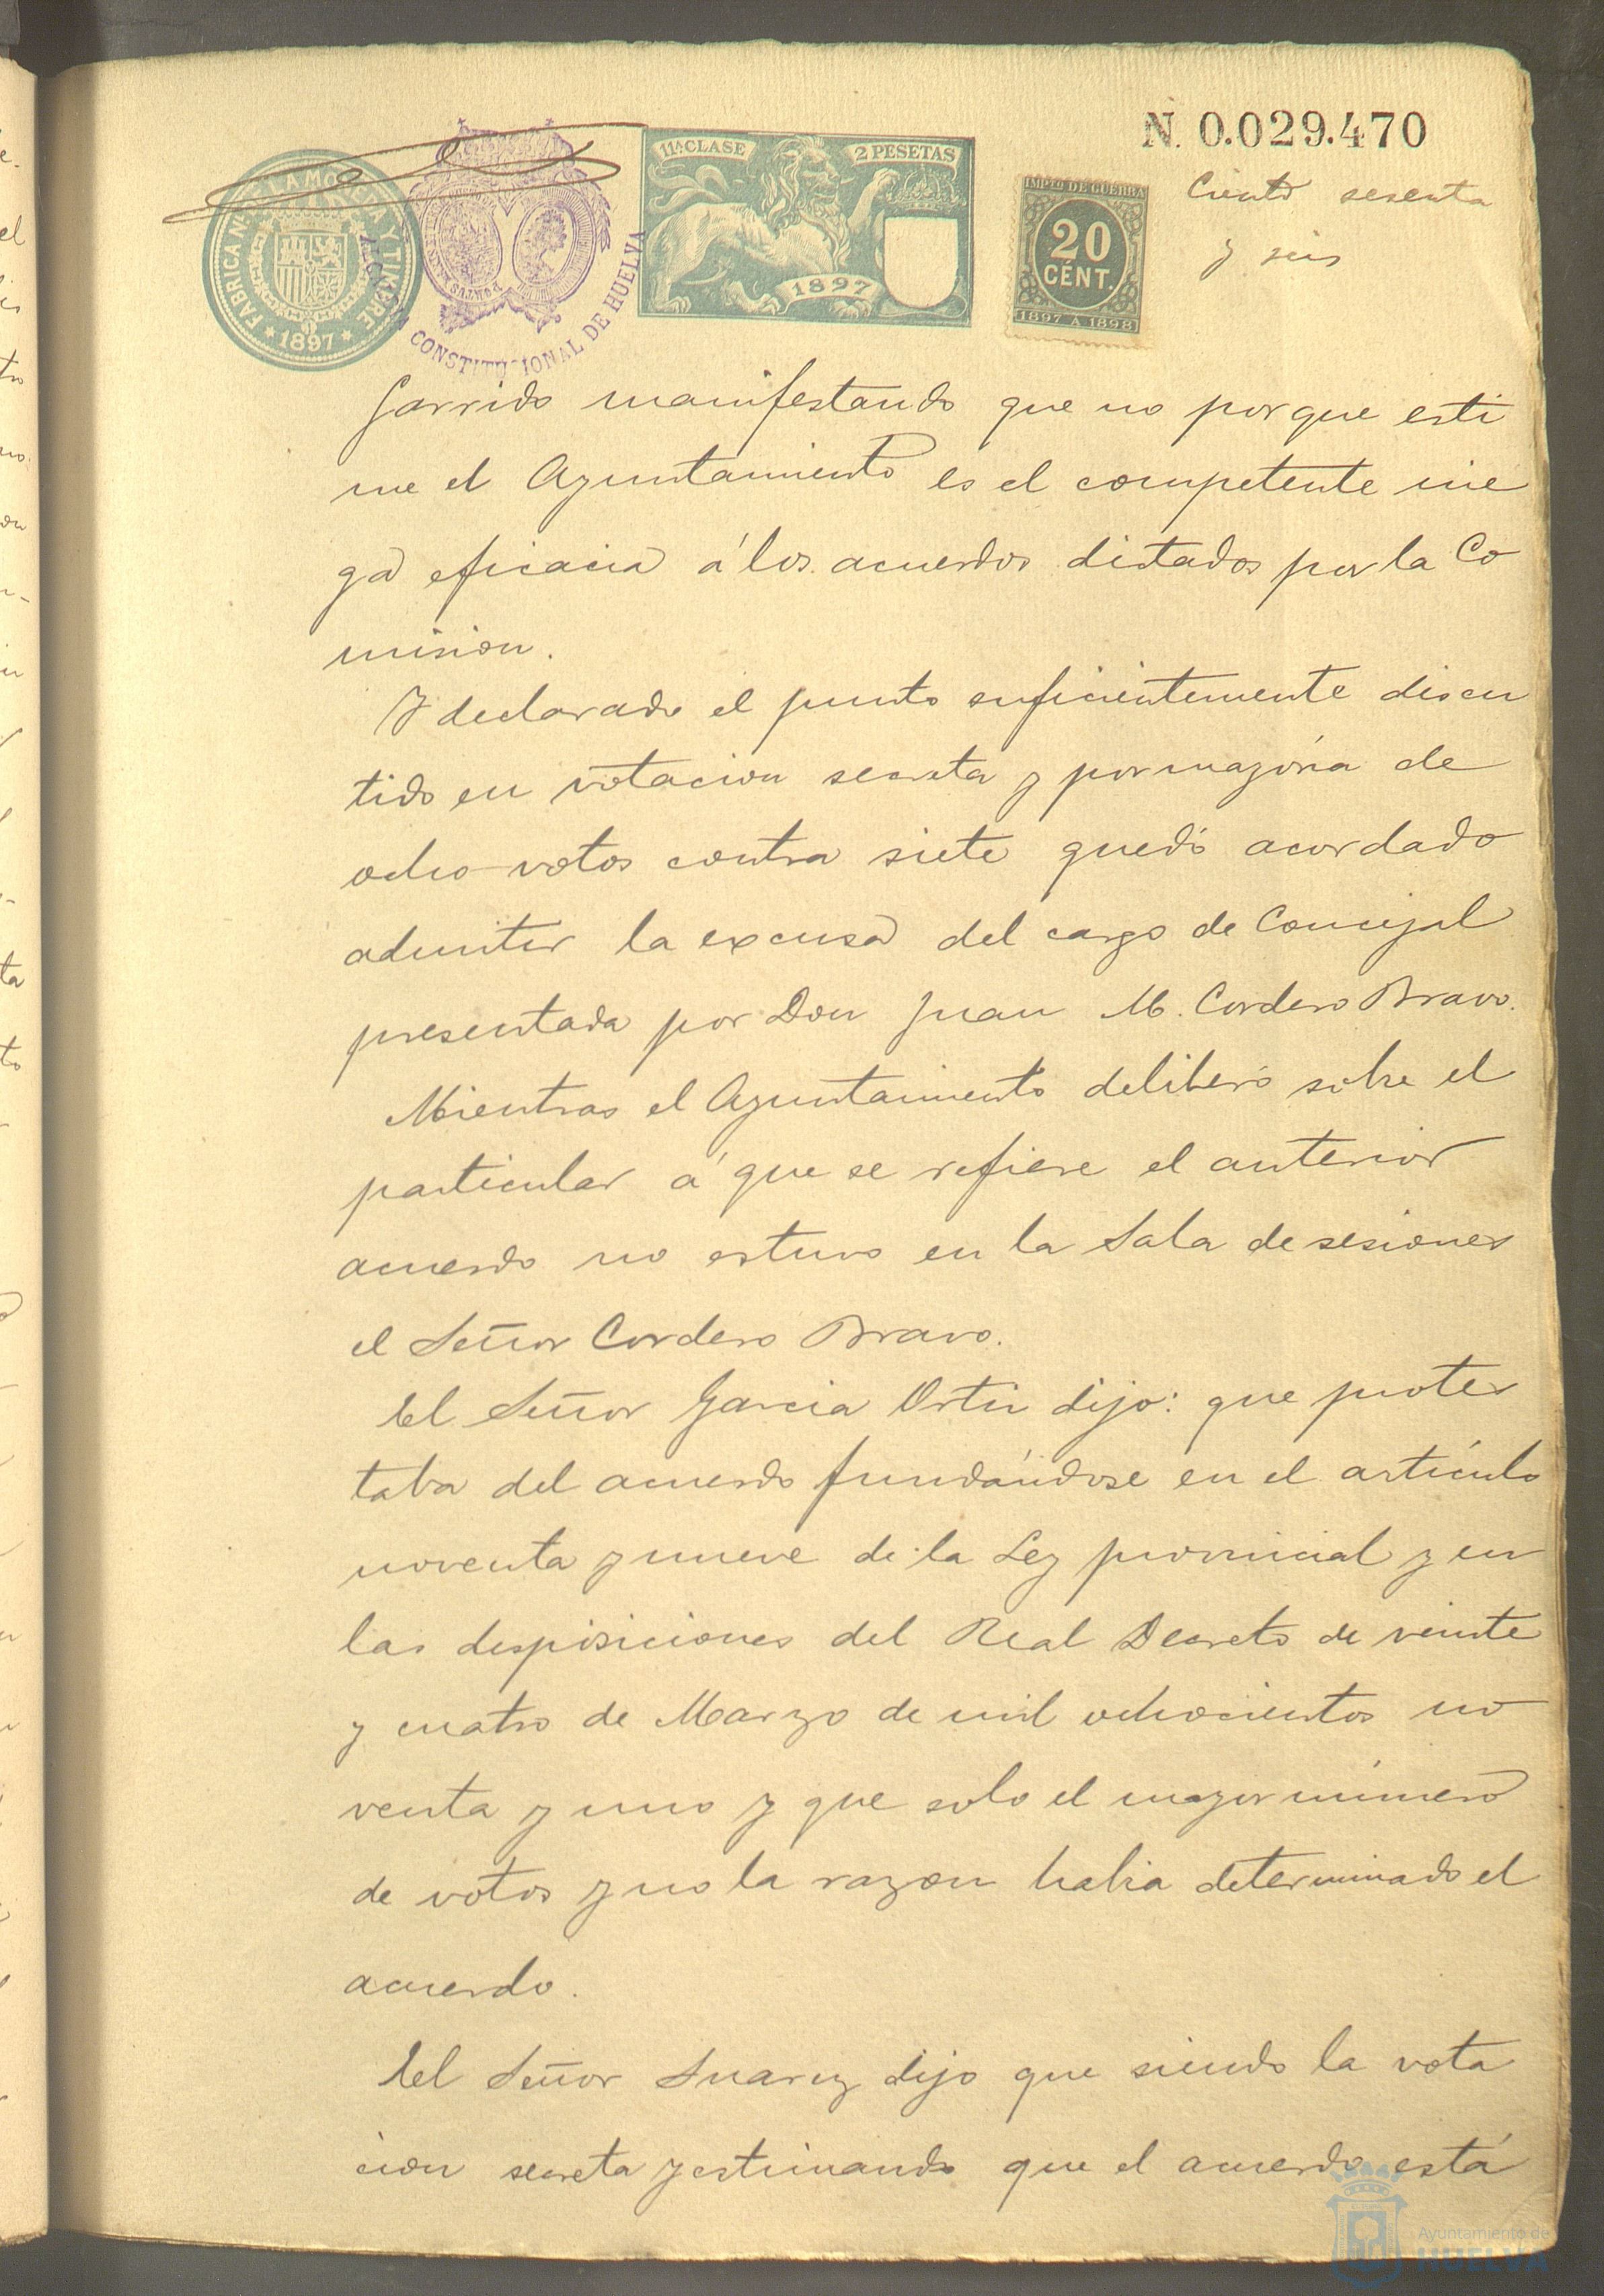 N. 0.029.470
Ciento sesenta
y seis
11ª CLASE
2 PESETAS
1897
IMPTO DE GUERRA
20
CÉNT.
1897 A 1898
FABRICA NAL DE LA MONEDA Y TIMBRE
* 1897 *
ALCALDIA CONSTITUCIONAL DE HUELVA
Garrido manifestando que no porque esti
me el Ayuntamiento es el competente nie
ga eficacia á los acuerdos dictados por la Co
mision.
Y declarado el punto suficientemente discu
tido en votacion secreta y por mayoría de
ocho votos contra siete quedó acordado
admitir la excusa del cargo de Concejal
presentada por Don Juan M. Cordero Bravo.
Mientras el Ayuntamiento deliberó sobre el
particular á que se refiere el anterior
acuerdo no estuvo en la Sala de sesiones
el Señor Cordero Bravo.
El Señor Garcia Ortiz dijo: que protes
taba del acuerdo fundándose en el artículo
noventa y nueve de la Ley provincial y en
las disposiciones del Real Decreto de veinte
y cuatro de Marzo de mil ochocientos no
venta y uno y que solo el mayor número
de votos y no la razon habia determinado el
acuerdo.
El Señor Suarez dijo que siendo la vota
cion secreta y estimando que el acuerdo está
Ayuntamiento de
HUELVA